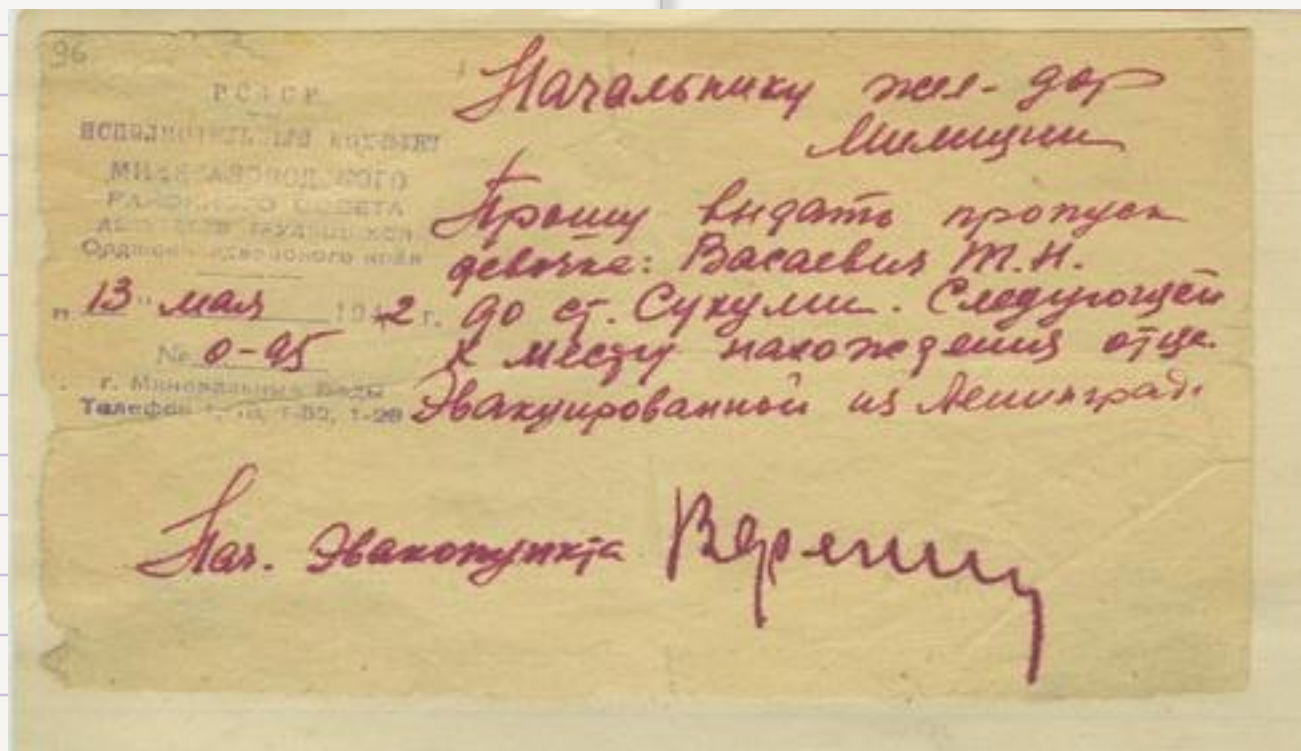 96
РСФСР
ИСПОЛНИТЕЛЬНЫЙ КОМИТЕТ
МИНЕРАЛОВОДСКОГО
РАЙОННОГО СОВЕТА
ДЕПУТАТОВ ТРУДЯЩИХСЯ
Орджоникидзевского края
"13" мая 1942 г.
№ 0-95
г. Минеральные Воды
Телефон 1-52, 1-28
Начальнику жел-дор
Милиции
Прошу выдать пропуск
девочке: Васаевич Т.Н.
до ст. Сухуми. Следующей
к месту нахождения отца.
Эвакуированной из Ленинград.
Нач. Эвакопункта